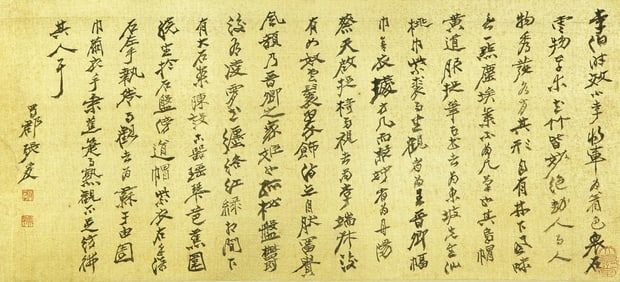 李伯時效小李將軍為著色泉石
雲物草木花竹皆妙絕動人而人
物秀發各肖其形自有林下風味
無一點塵埃氣不為凡筆也其烏帽
黃道服捉筆而書者為東坡先生仙
桃巾紫裘而坐觀者為王晉卿幅
巾青衣據方几而凝竚者為丹陽
蔡天啟捉椅而視者為李端叔後
有女奴雲鬟翠飾侍立自然富貴
風韻乃晉卿之家姬也孤松盤鬱
後有凌霄纏絡紅綠相間下
有大石案陳設古器瑤琴芭蕉圍
繞坐於石盤傍道帽紫衣右手倚
石左手執卷而觀者為蘇子由團
巾繭衣手秉蕉箑而熟觀不足彷彿
其人耳
蜀郡張爰